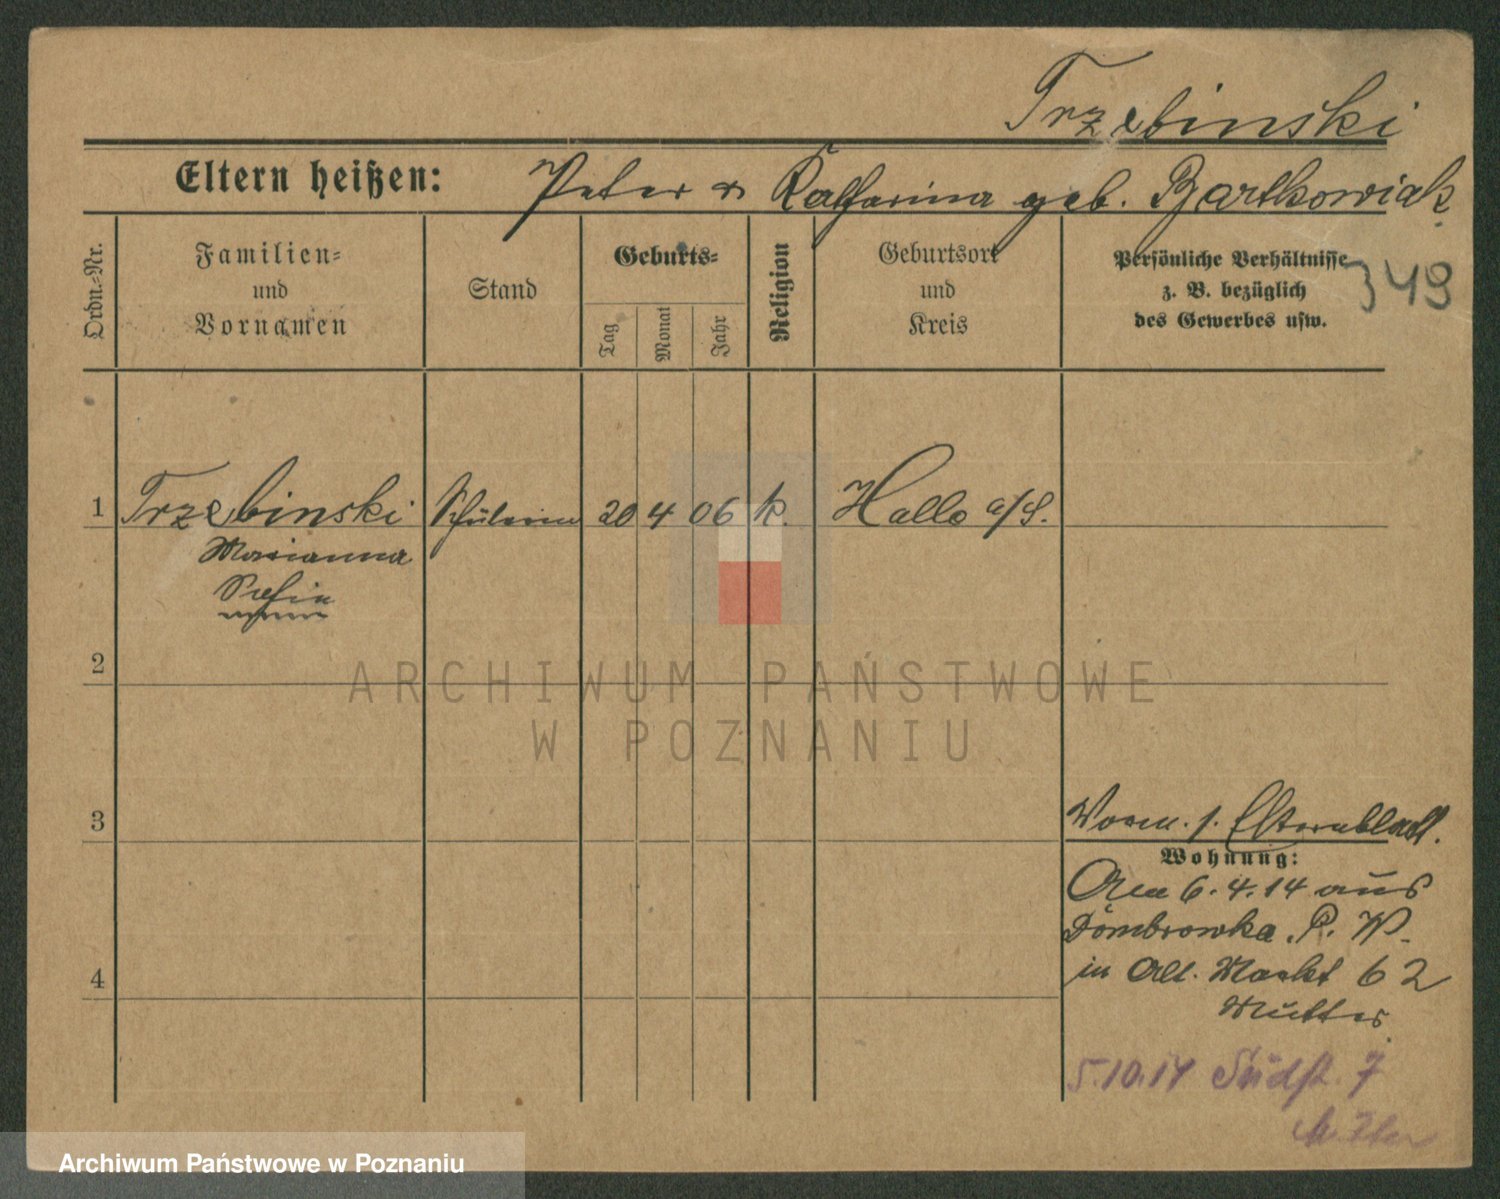 Trzebinski
Eltern heißen: Peter u Katharina geb. Bartkowiak
Ordn.-Nr.
Familien-
und
Vornamen
Stand
Geburts-
Tag
Monat
Jahr
Religion
Geburtsort
und
Kreis
Persönliche Verhältnisse
z. B. bezüglich
des Gewerbes usw.
349
1 Trzebinski Schülerin 20 4 06 k. Halle a/S.
Marianna
2
ARCHIWUM PAŃSTWOWE
W POZNANIU
3
Vorm. s. Elternblatt.
Wohnung:
Am 6.4.14 aus
Dombrowka P. W.
in Alt. Markt 62
4
Mutter
5.10.14 Südst. 7
Archiwum Państwowe w Poznaniu